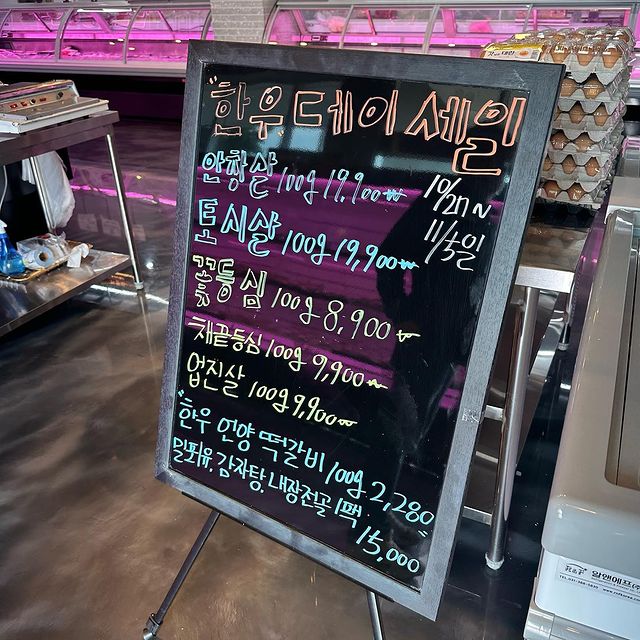 "한우데이 세일"
10/27 ~
11/5일
안창살 100g 19,900₩
토시살 100g 19,900₩
꽃등심 100g 8,900₩
채끝등심 100g 9,900₩
업진살 100g 9,900₩
"한우 언양 떡갈비 100g 2,280"
밀푀유, 감자탕, 내장전골 1팩
15,000
알앤에프(주)